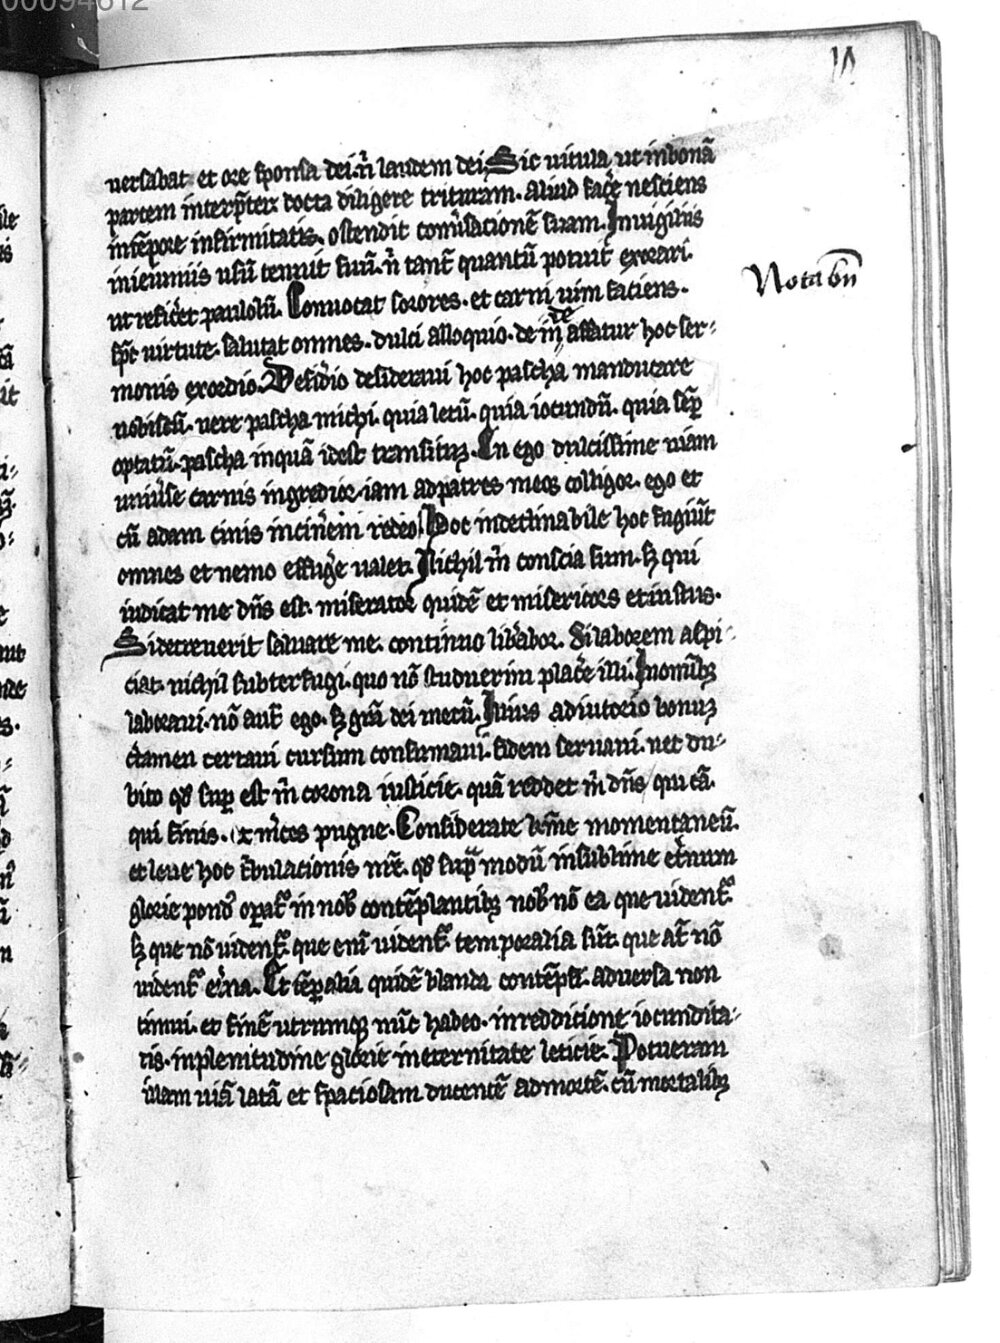 00094612
uersabat et ore sponsa dei. n̄ laudem dei. Sic uitula ut in bonā
partem interp̄ter docta diligere trituram. Aliud facẽ nesciens
in tēpore infirmitatis. ostendit conũsacionē suam. In uigiliis
in ieiuniis usū tenuit suū. n̄ tant̄ quantū potuit exorari.
ut reficẽt paulolū. Conuocat sorores. et carni uim faciens.
sp̄c uirtute. salutat omnes. dulci alloquio. de in affatur hoc ser-
de
monis exordio. Desid̾io desideraui hoc pascha manducare
uobiscū. uere pascha michi. quia letū. quia iocundū. quia sēp̱
optatū. pascha inquā idest transitus. En ego dulcissime uiam
uniũse carnis ingredior. iam ad patres meos colligor. ego et
cū adam cinis in cinẽm redeo. Hoc indeclinabile hoc fugiūt
omnes et nemo effugẽ ualet. Nichil m̄ conscia sum. sꝫ qui
iudicat me dn̄s est. miserator quidē et misericors et iustus.
Si decreuerit saluare me. continuo lib̾abor. Si laborem aspi-
ciat. nichil subterfugi. quo nō studuerim placẽ illi. In omībꝫ
laboraui. nō aut̄ ego. sꝫ gr̄a dei mecū. Huius adiutorio bonuꝫ
c̾tamen certaui cursum consumaui. fidem seruaui. nec du-
bito qđ sup̱ est m̄ corona iusticie. quā reddet m̄ dn̄s qui cā.
qui finis. et m̾ces pugne. Considerate kr̄me momentaneū.
et leue hoc t̾bulationis nr̄e. qđ sup̱ modū in sublime et̾num
glorie pond᷒ opat᷑ in nob̄ contēplantibꝫ nob̄ nō ea que uident᷑
sꝫ que nō uident᷑. que eni uident᷑ temporalia sūt. que at̄ nō
uident᷑ et̾na. Et tēp̱alia quidē blanda contēpsi. aduersa non
timui. et finē utrumqꝫ nūc habeo. in redditione iocundita-
tis. in plenitudine glorie in eternitate leticie. Potueram
illam uiā latā et spaciosam ducentē ad mortē. cū mortalibꝫ
Nota bn̄